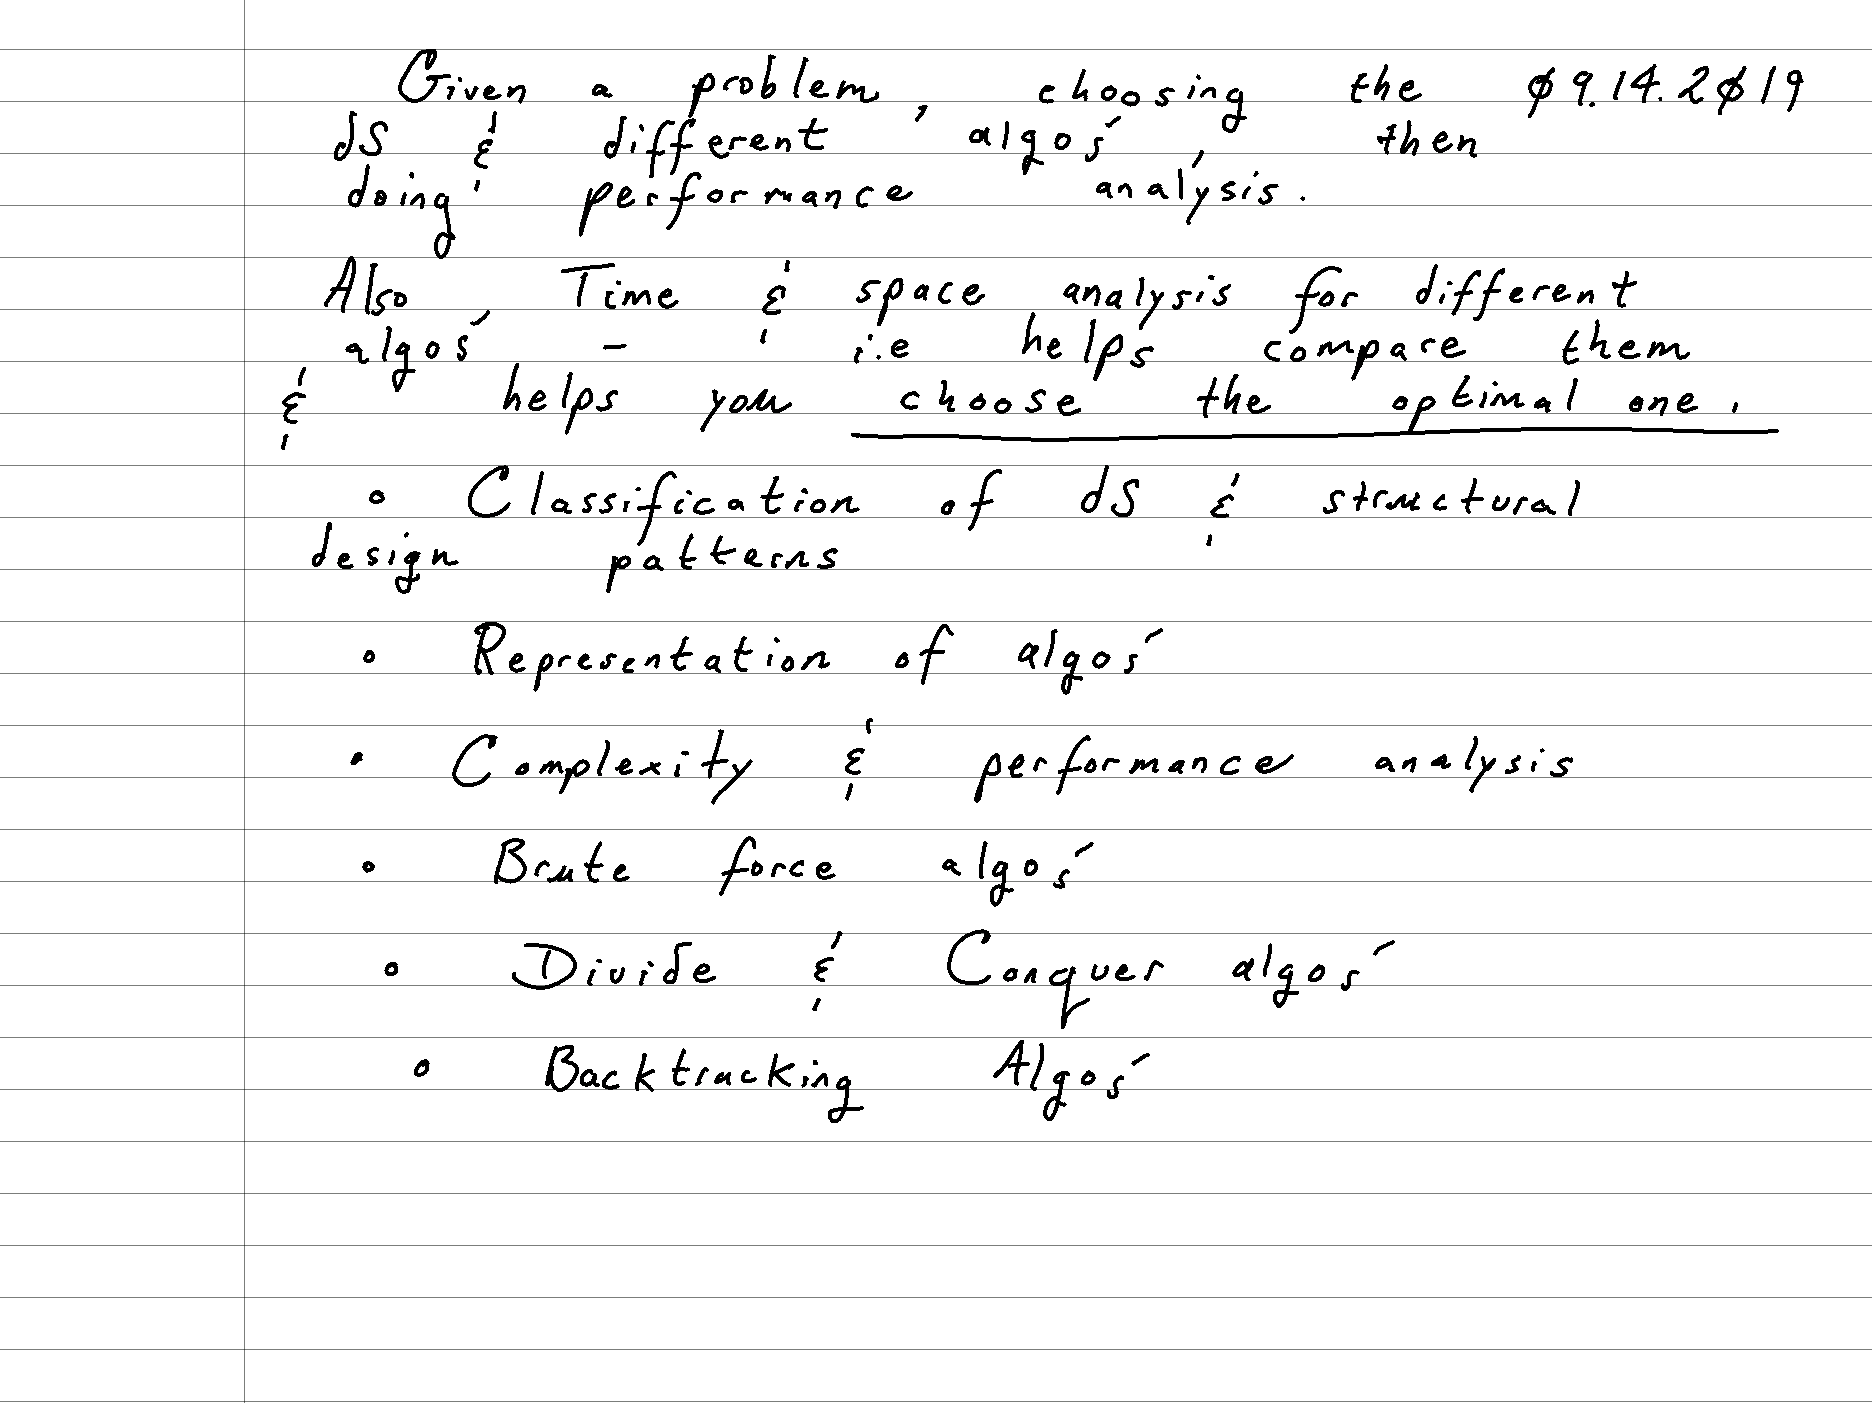 Given a problem, choosing the 09.14.2019
dS & different algos', then
doing performance analysis.
Also, Time & space analysis for different
algos' - i.e helps compare them
& helps you choose the optimal one.
• Classification of dS & structural
design patterns
• Representation of algos'
• Complexity & performance analysis
• Brute force algos'
• Divide & Conquer algos'
• Backtracking Algos'